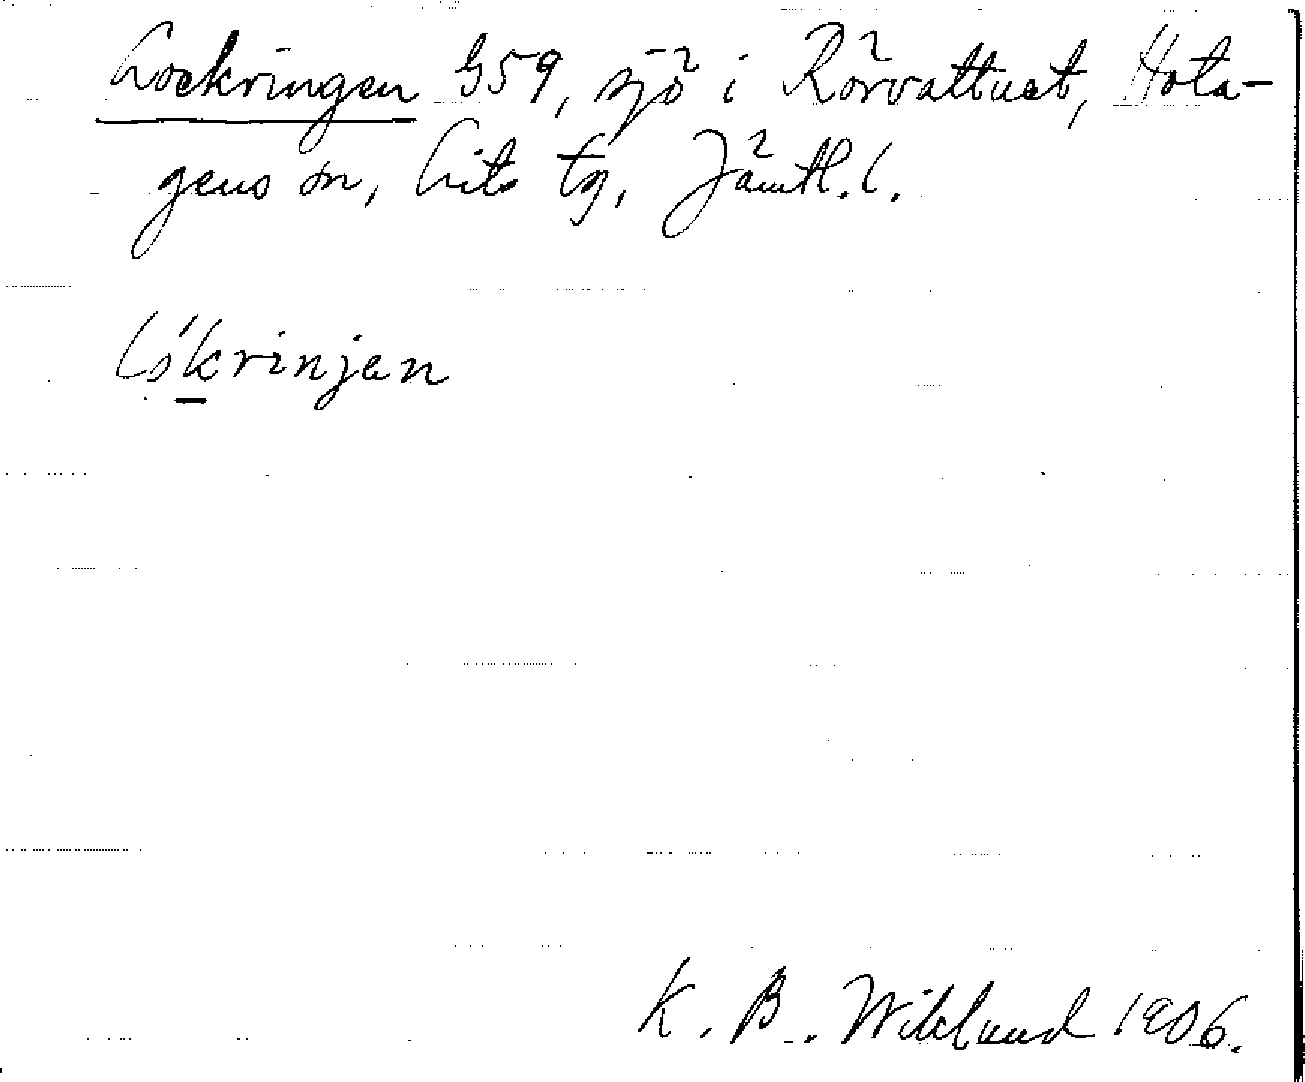 Lockringen G59, sjö i Rörvattnet, Hota-
gens sn, Lits tg, Jämtl. l.
Låkrinjen
K. B. Wiklund 1906.